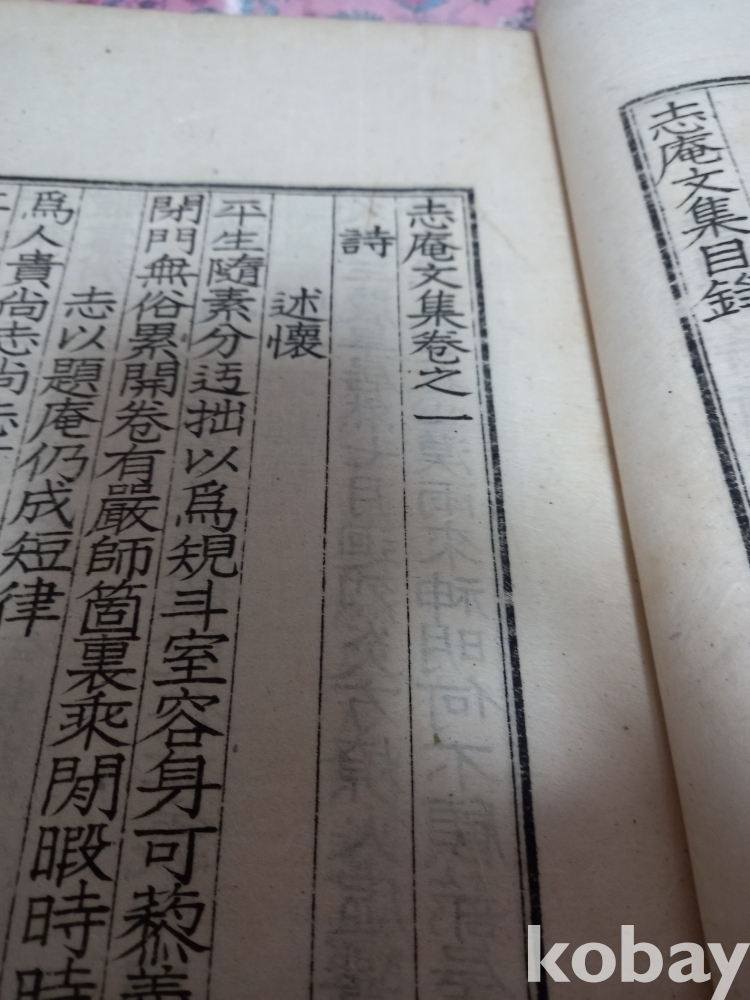 志庵文集目錄
志庵文集卷之一
詩
述懷
平生隨素分迃拙以爲規斗室容身可藜
閉門無俗累開卷有嚴師箇裏乘閒暇時時
志以題庵仍成短律
爲人貴尚志尚志
kobay